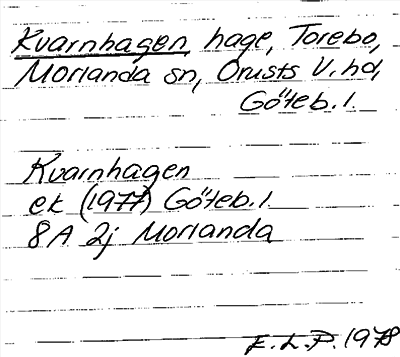 Kvarnhagen, hage, Torebo,
Morlanda sn, Orusts V. hd,
Göteb. l.
Kvarnhagen
ek (1977) Göteb. l.
8A 2j Morlanda
E. L. P. 1978